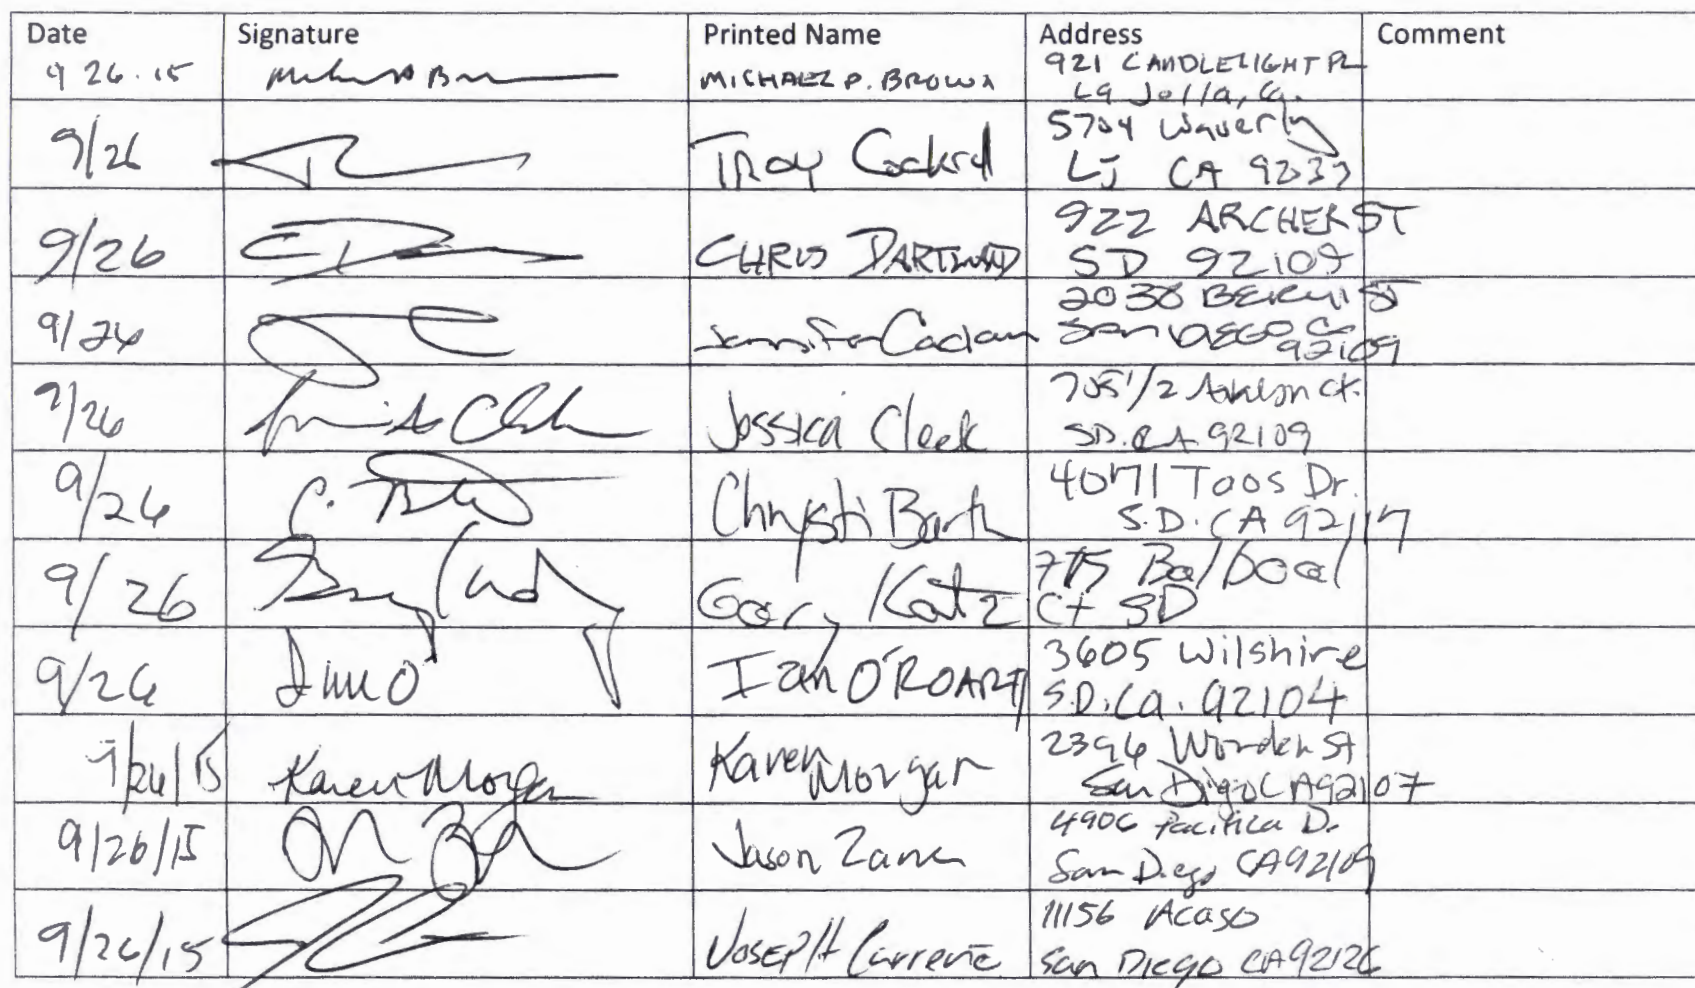 Date Signature Printed Name Address Comment
9 26.15 MICHAEL P. BROWN 921 CANDLELIGHT PL
La Jolla, Ca.
9/26 TROY Cockrell 5704 Waverly
LJ CA 92037
9/26 CHRIS 922 ARCHER ST
SD 92109
9/26 Jennifer 2038 BERYL ST
San DIEGO Ca
92109
9/26 Jessica Cleek 705 1/2 Ct.
SD. CA 92109
9/26 C. Chrysti Barth 4071 Taos Dr.
S.D. CA 92117
9/26 Gary Katz 775 Balboa
Ct SD
9/26 Ian O'ROARTY 3605 Wilshire
S.D. Ca. 92104
9/26/15 Karen Morgan Karen Morgan 2396 Worden St
San Diego CA 92107
9/26/15 Jason 4906 Pacifica Dr
San Diego CA 92109
9/26/15 JOSEPH 11156 Acaso
San Diego CA 92126